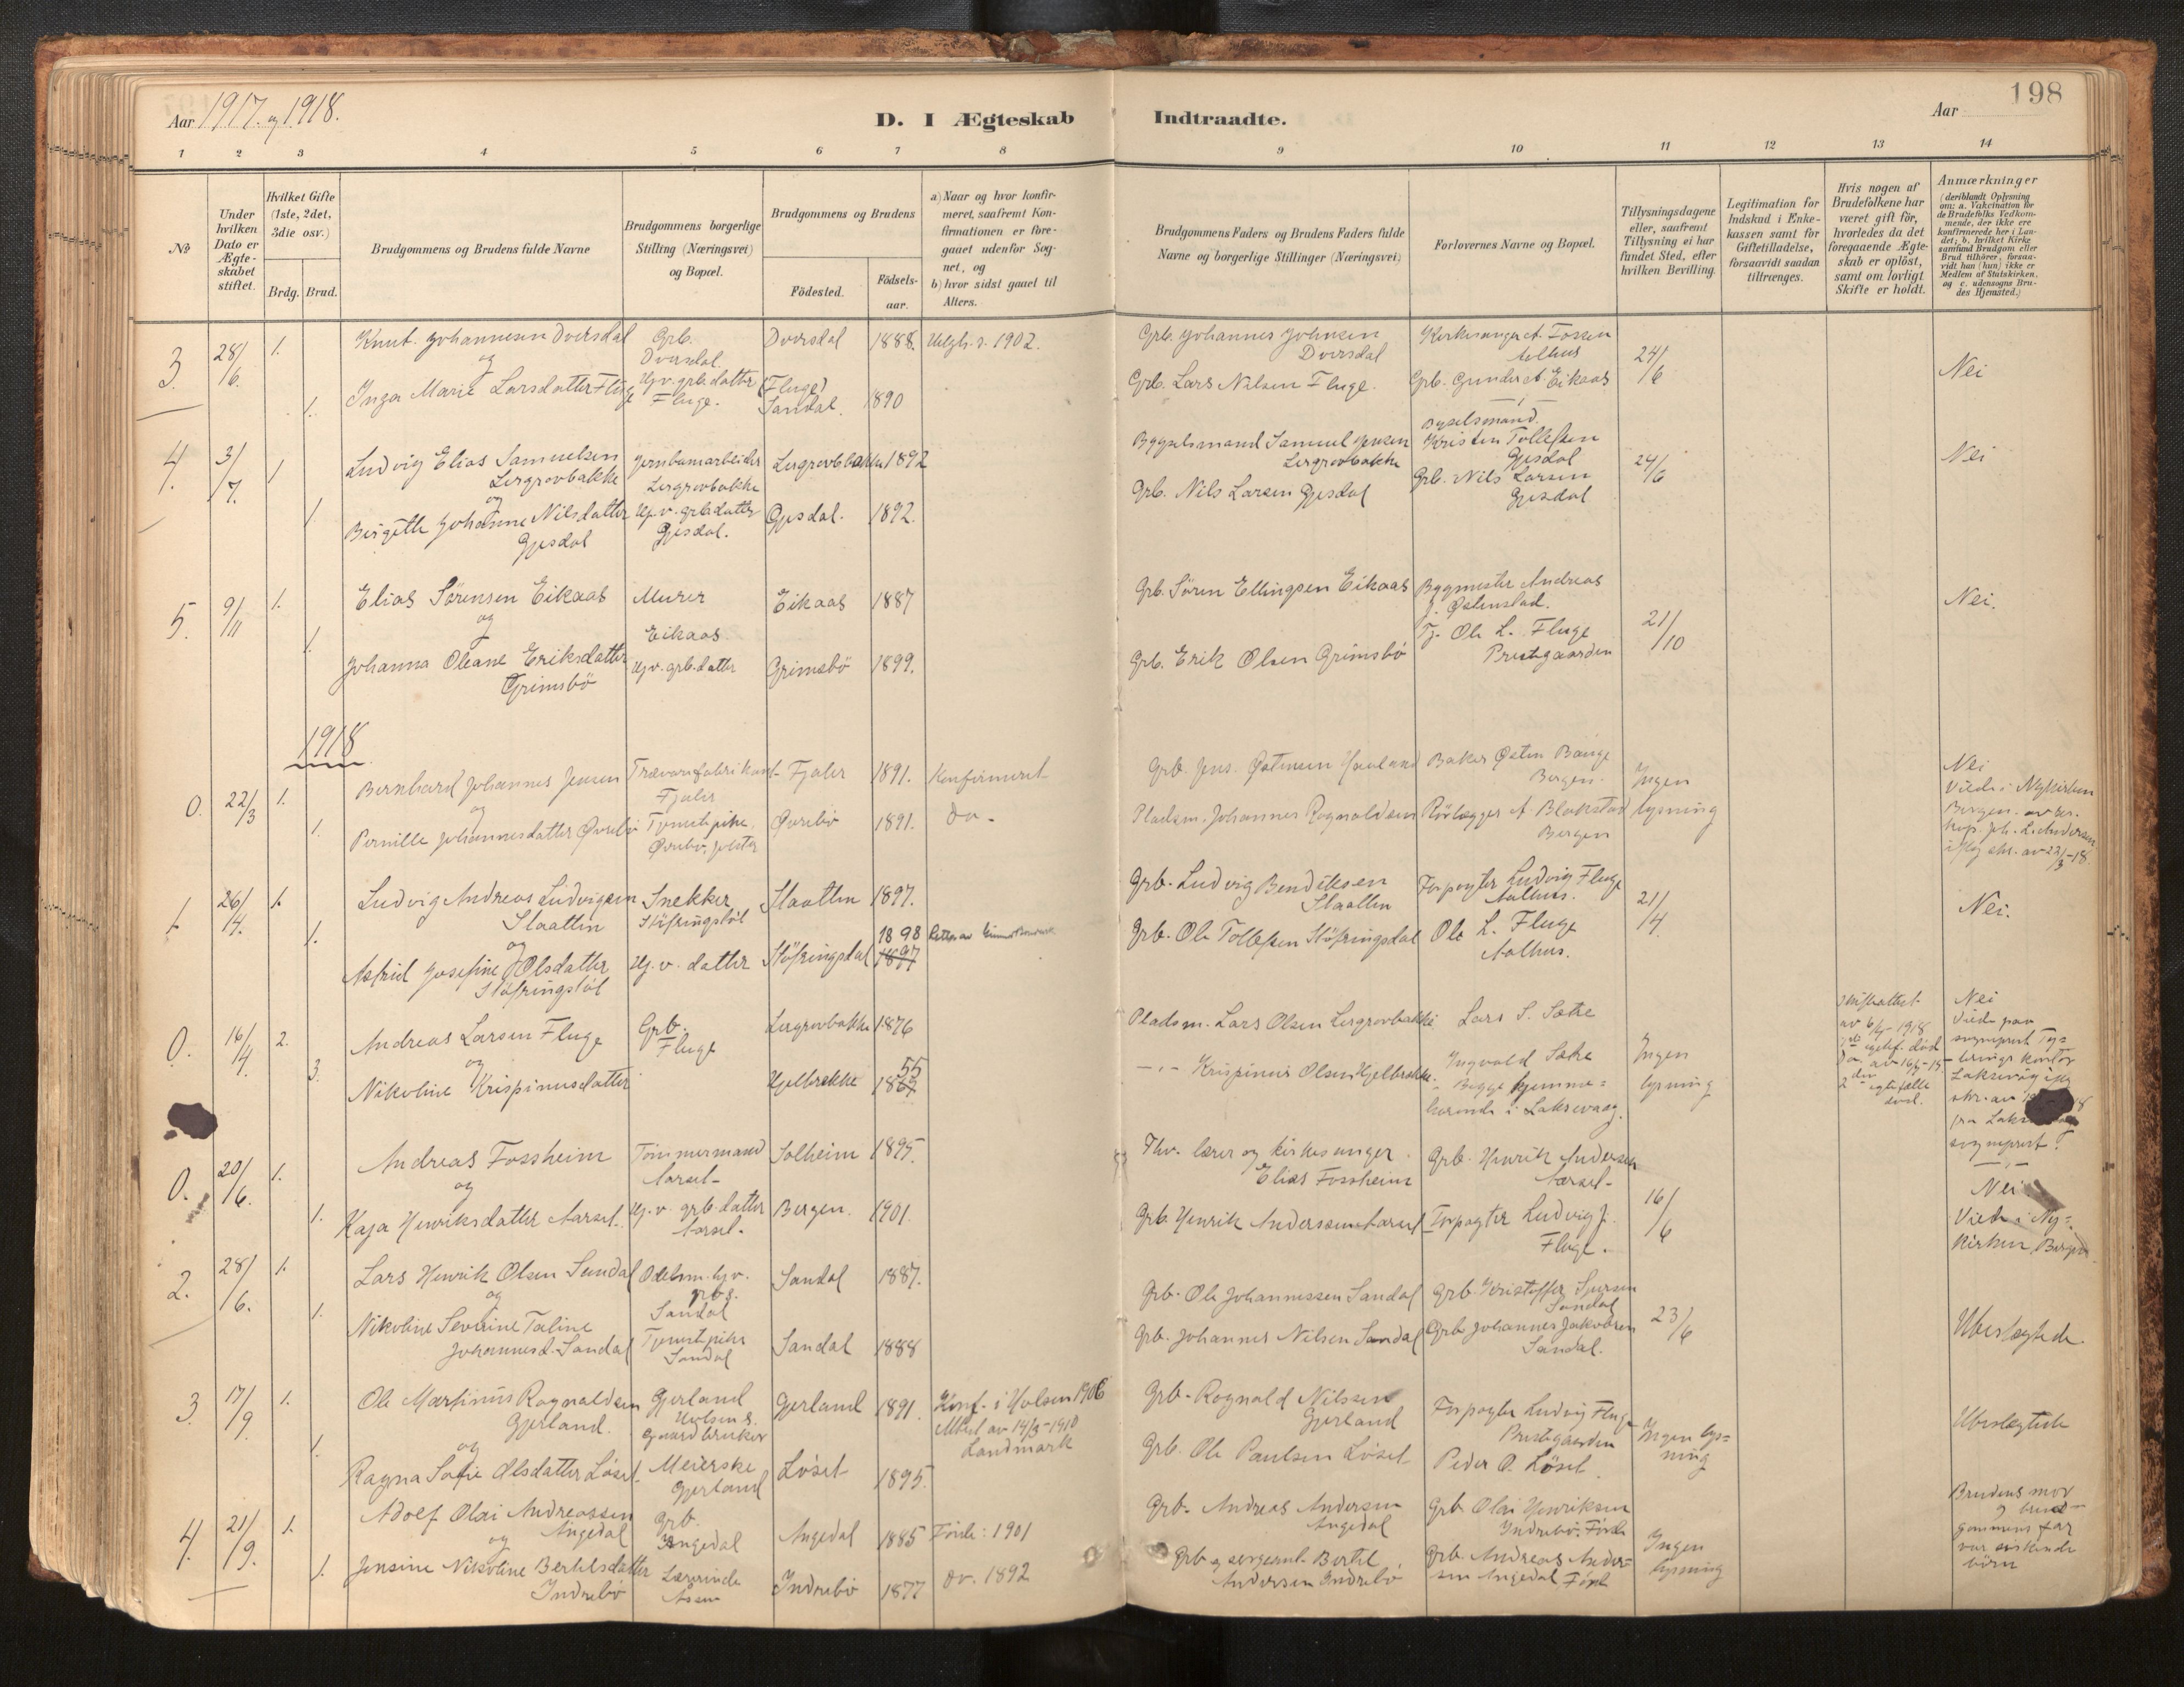 Aar 1917. og 1918.
D. I Ægteskab Indtraadte.
Aar
198
1 2 3 4 5 6 7 8 9 10 11 12 13 14
No
Under hvilken Dato er Ægteskabet stiftet.
Hvilket Gifte (1ste, 2det, 3die osv.)
Brdg. Brud.
Brudgommens og Brudens fulde Navne
Brudgommens borgerlige Stilling (Næringsvei) og Bopæl.
Brudgommens og Brudens
Födested.
Födsels-aar.
a) Naar og hvor konfirmeret, saafremt Konfirmationen er foregaaet udenfor Sognet, og
b) hvor sidst gaaet til Alters.
Brudgommens Faders og Brudens Faders fulde Navne og borgerlige Stillinger (Næringsvei)
Forlovernes Navne og Bopæl.
Tillysningsdagene eller, saafremt Tillysning ei har fundet Sted, efter hvilken Bevilling.
Legitimation for Indskud i Enkekassen samt for Giftetilladelse, forsaavidt saadan tiltrænges.
Hvis nogen af Brudefolkene har været gift för, hvorledes da det foregaaende Ægteskab er oplöst, samt om lovligt Skifte er holdt.
Anmærkninger
(deriblandt Oplysning om: a. Vakcination for de Brudefolks Vedkommende, der ikke ere konfirmerede her i Landet; b. hvilket Kirkesamfund Brudgom eller Brud tilhörer, forsaavidt han (hun) ikke er Medlem af Statskirken, og c. udensogns Brudes Hjemsted.)
3. 28/6. 1.
Knut Johannesen Dversdal
og
Grb. Dversdal.
Dversdal
1888.
1902.
Grb. Johannes Johnsen
Dversdal
Kirkesanger A. Fossen
Aalhus
24/6
Nei
1.
Inga Marie Larsdatter Fluge
Hjv. grb. datter
Fluge.
(Fluge)
Sandal.
1890
Grb. Lars Nilsen Fluge.
Grb. Gunder A. Eikaas
4. 3/7. 1
Ludvig Elias Samuelsen
Lergrovbakke
og
Jernbanearbeider
Lergrovbakke
Lergrovbakke
1892
Bygselsmand Samuel Jensen
Lergrovbakke
Bygselsmand.
Kristen Tollefsen
Gjesdal
24/6
Nei
1.
Birgitte Johanne Nilsdatter
Gjesdal
Hj. v. grb. datter
Gjesdal.
Gjesdal.
1892.
Grb. Nils Larsen Gjesdal
Grb. Nils Larsen
Gjesdal
5. 9/11 1.
Elias Sørensen Eikaas
og
Murer
Eikaas
Eikaas
1887
Grb. Søren Ellingsen Eikaas
Bygmester Andreas
J. Østenstad.
21/10
Nei.
1.
Johanna Oleane Eriksdatter
Grimsbö
Hj. v. grb. datter
Grimsbö
1899.
Grb. Erik Olsen Grimsbö
Tj. Ole L. Fluge
Prestegaarden
1918
0. 22/3 1.
Bernhard Johannes Jensen
og
Trævarefabrikant
Fjaler
Fjaler
1891.
Konfirmeret
Grb. Jens Østensen Hauland
Baker Østen Bauge
Bergen.
Ingen
lysning
Nei
Viede i Nykirken
Bergen. av res.
kap. Joh. L. Andersen
iflg skr. av 22/3-18.
1.
Pernille Johannesdatter Øvrebö
Tjenestepike.
Øvrebö, Jølster
Øvrebö
1891.
Do.
Pladsm. Johannes Rognaldsen
Rörlægger A Blakstad
Bergen
1 26/4. 1.
Ludvig Andreas Ludvigsen
Slaatten
og
Snekker
Stöfringstöl
Slaatten
1897.
Grb. Ludvig Bendiksen
Slaatten
Forpagter Ludvig Fluge
Aalhus.
21/4.
Nei.
1.
Astrid Josefine Olsdatter
Stöfringstöl
Hj. v. datter
Stöfringsdal
1898
1897
Grb. Ole Tollefsen Stöfringsdal
Ole L. Fluge
Aalhus.
0. 16/4. 2.
Andreas Larsen Fluge
og
Grb.
Fluge
Lergrovbakke
1876
Pladsm. Lars Olsen Lergrovbakke
Lars S. Sæhe
Ingen
lysning
Nei
Viede paa
sogneprest
kontor
Laksevåg
3.
Nikoline Krispinusdatter
Hjelbrekke
55
Krispinus Olsen Hjelbrekke
Ingvald Sæhe
Begge hjemme-
hörende i Laksevaag.
sogneprest
0. 20/6. 1.
Andreas Fossheim
og
Tömmermand
Aarset
Solheim
1895.
Fhv. lærer og kirkesanger
Elias Fossheim
Grb. Henrik Andersen
Aarset
16/6
Nei
Viede i Ny=
kirken, Bergen
1.
Kaja Henriksdatter Aarset.
Hj. v. grb. datter
Aarset.
Bergen.
1901.
Grb. Henrik Anderssen Aarset
Forpagter Ludvig J.
Fluge.
2. 28/6. 1.
Lars Henrik Olsen Sandal
og
Odelsm. hjv.
Sandal
Sandal
1887.
Grb. Ole Johannessen Sandal
Grb. Kristoffer Sjursen
Sandal
23/6
Ubeslegtede.
1.
Nikoline Severine Taline
Johannesd. Sandal
Tjenestpike
Sandal
Sandal
1888
Grb. Johannes Nilsen Sandal
Grb Johannes Jakobsen
Sandal.
3. 17/9. 1.
Ole Martinus Rognaldsen
Gjerland.
og
Gjerland
Holsen s.
gaardbruker
Gjerland
1891.
Konf. i Holsen 1906
Attest av 14/8-1918
Landmark
Grb. Rognald Nilssen
Gjerland
Forpagter Ludvig Fluge
Prestegaarden
Ingen lys=
ning
Ubeslegtede
1.
Ragna Sofie Olsdatter Löset
Meierske
Gjerland
Löset
1895.
Grb. Ole Paulsen Löset
Peder O. Löset.
4. 21/9. 1.
Adolf Olai Andreassen
Angedal
og
Grb.
Angedal
Angedal
1885
Förde: 1901
Grb. Andreas Andersen
Angedal
Grb Olai Henriksen
Indrebö. Förde
Ingen
lysning
Brudens mor
og brud-
gommens far
var söskende
börn
1.
Jensine Nikoline Bertelsdatter
Indrebö
Lærerinde
Indrebö
1877
Do. 1892
Grb og Bertel
Andersen Indrebö
Grb. Andreas Ander=
sen Angedal Förde